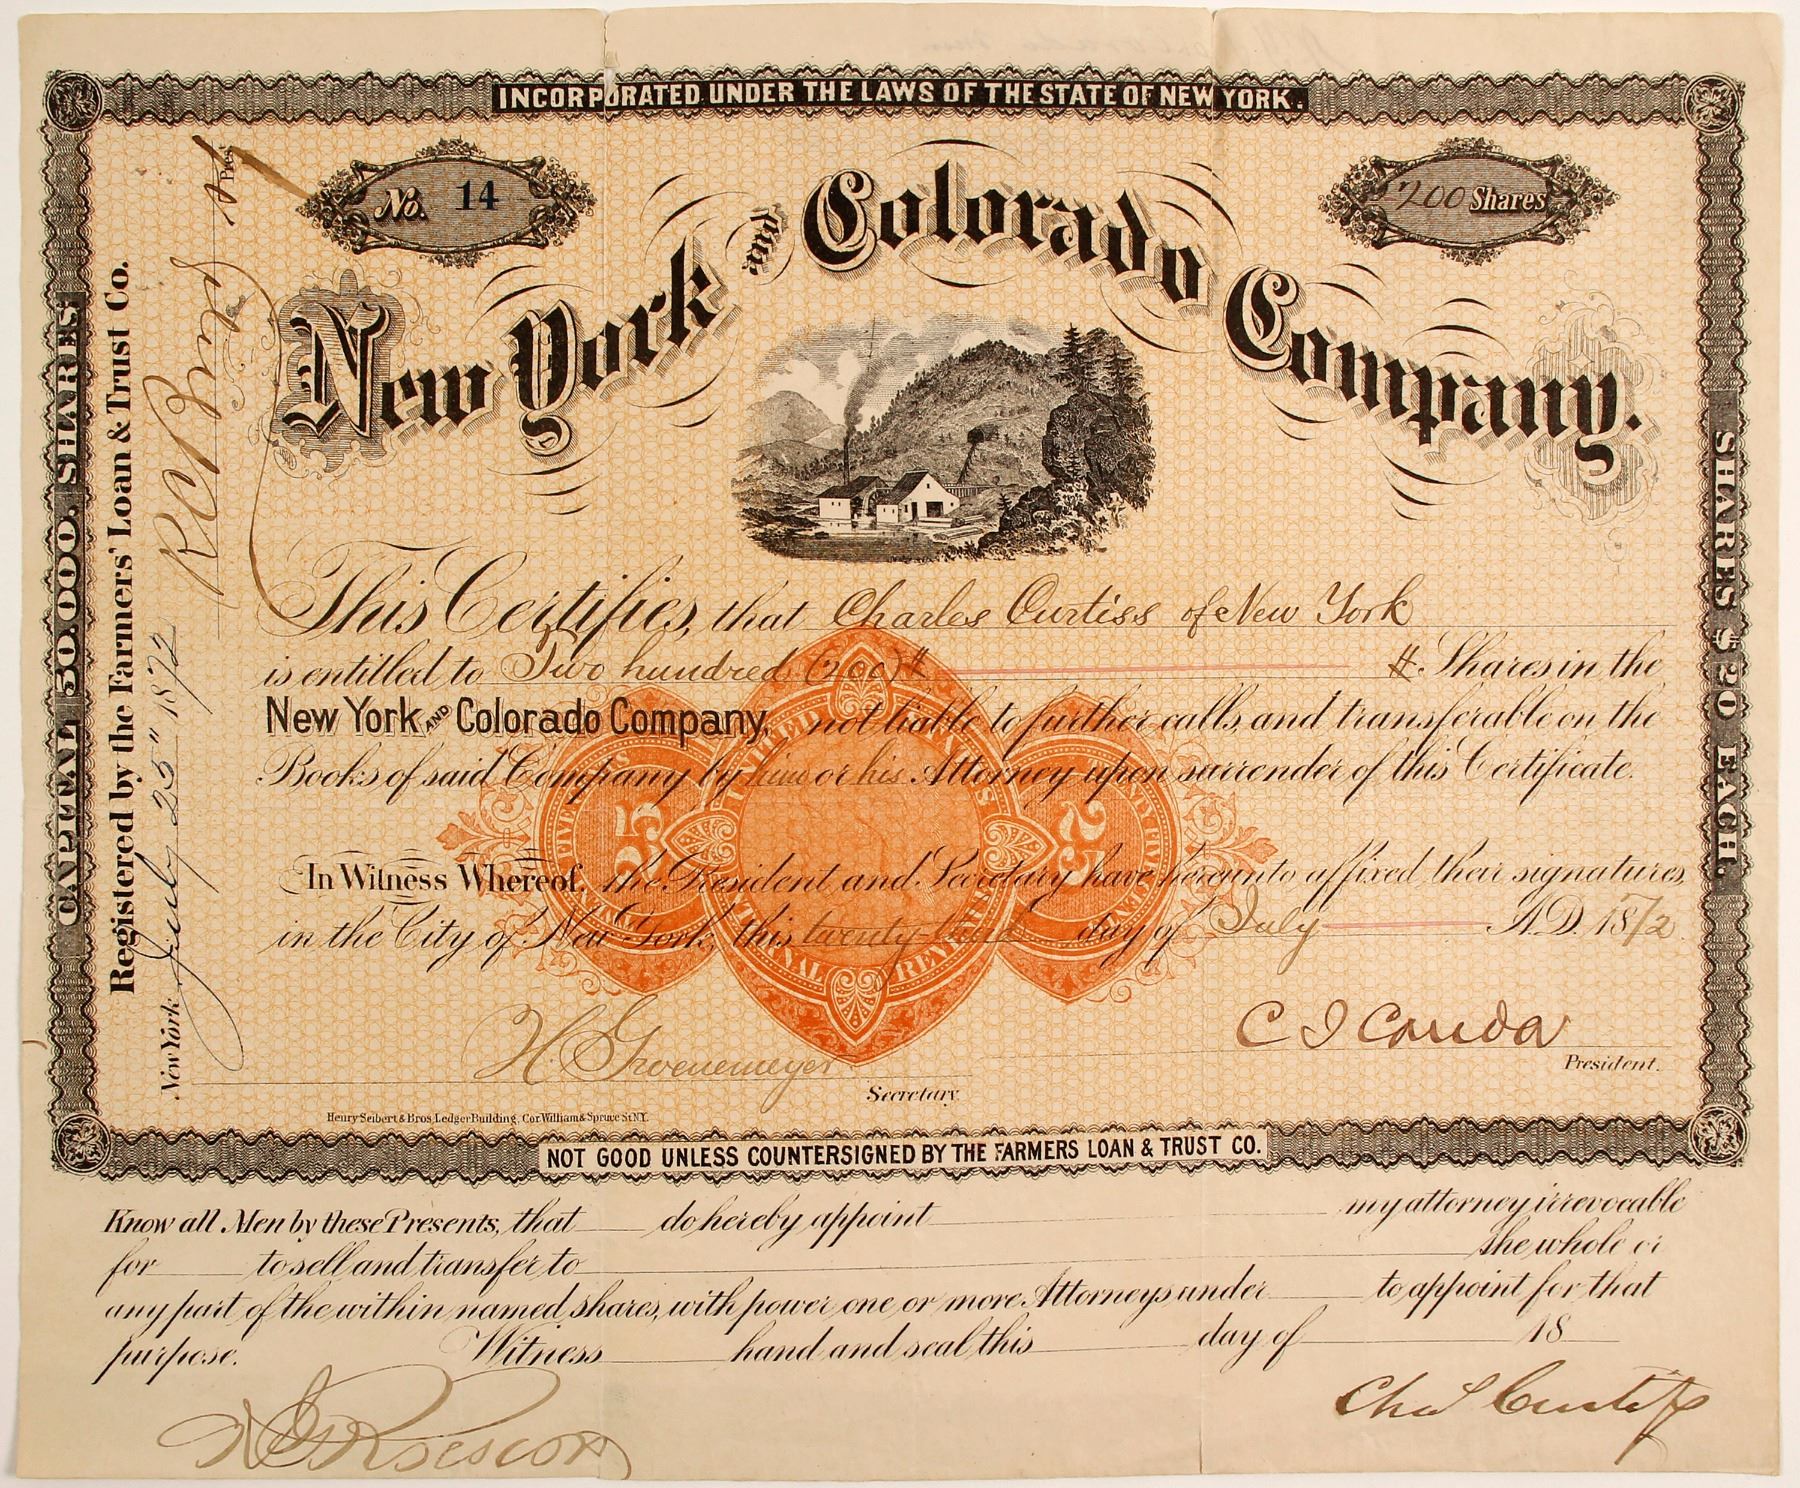 INCORPORATED UNDER THE LAWS OF THE STATE OF NEW YORK.
No. 14
200 Shares
New York and Colorado Company.
CAPITAL 50.000. SHARES
Registered by the Farmers' Loan & Trust Co.
New York July 25" 1872
Pres.
SHARES $20 EACH.
This Certifies, that Charles Curtiss of New York
is entitled to Two hundred (200) Shares in the
New York AND Colorado Company, not liable to further calls, and transferable on the
Books of said Company by him or his Attorney upon surrender of this Certificate.
UNITED STATES INTERNAL REVENUE
25
TWENTY FIVE CENTS
In Witness Whereof, the President and Secretary have hereunto affixed their signatures,
in the City of New York, this twenty third day of July A.D. 1872
H. Groenemeyer
Secretary.
C I Conda
President.
Henry Seibert & Bros. Ledger Building, Cor William & Spruce St N.Y.
NOT GOOD UNLESS COUNTERSIGNED BY THE FARMERS LOAN & TRUST CO.
Know all Men by these Presents, that do hereby appoint my attorney irrevocable
for to sell and transfer to the whole or
any part of the within named shares, with power one or more Attorneys under to appoint for that
purpose. Witness hand and seal this day of 18
Chas Curtiss